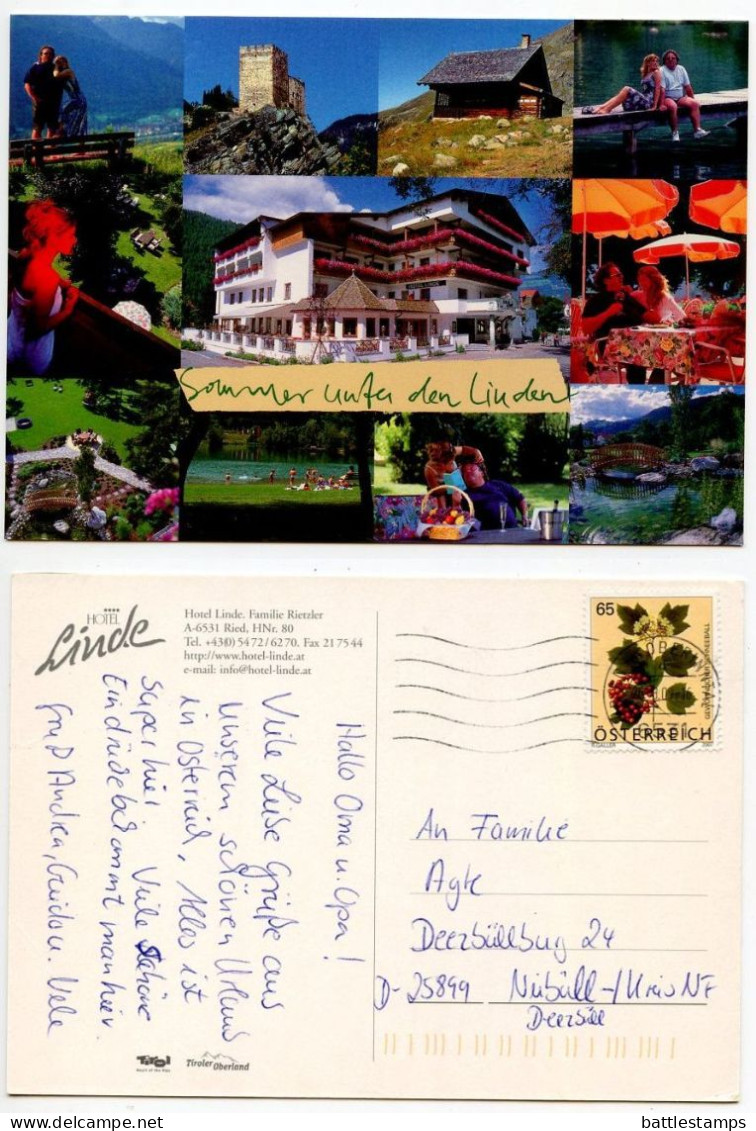 Sommer unter den Linden
HOTEL
Linde
Hotel Linde. Familie Rietzler
A-6531 Ried, HNr. 80
Tel. +43(0) 5472/6270. Fax 217544
http://www.hotel-linde.at
e-mail: info@hotel-linde.at
Hallo Oma u. Opa!
Viele Liebe Grüße aus
Unserem schönen Urlaub
in Österreich, Alles ist
Super hier. Viele Schöne
Eindrücke bekommt man hier.
Gruß Andrea, Guido u.
65
ÖSTERREICH
An Familie
Agte
Deezbüllburg 24
D-25899 Niebüll-/Kreis NF
Deezbüll
Tirol
Tiroler
Oberland
battlestamps